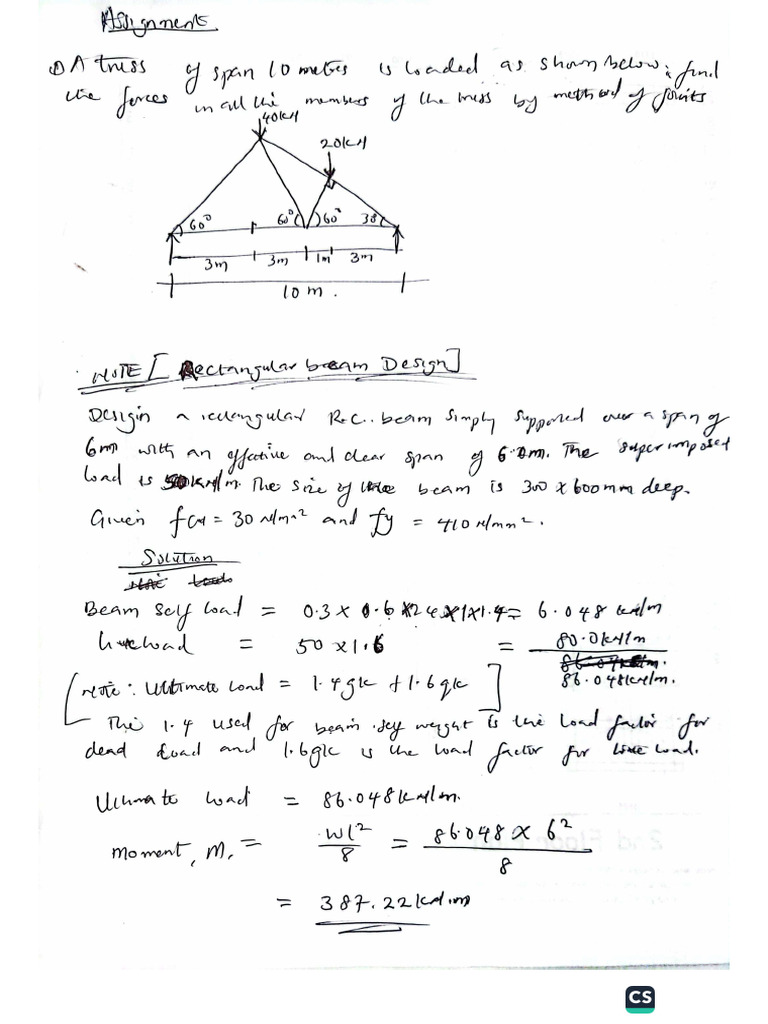 Assignment
① A truss of span 10 metres is loaded as shown below; find
the forces in all the members of the truss by method of joints
40kN
20kN
60° 60° 60° 30
3m 3m 1m 3m
10m.
NOTE [Rectangular beam Design]
Design a rectangular R.C. beam simply supported over a span of
6m with an effective and clear span of 6.0m. The superimposed
load is 50kN/m. The size of the beam is 300 x 600mm deep.
Given fcu = 30 N/mm² and fy = 410 N/mm².
Solution
Beam Self load = 0.3 x 0.6 x 24 x 1 x 1.4 = 6.048 kN/m
Live load = 50 x 1.6 = 80.0kN/m
86.048kN/m.
[Note: Ultimate Load = 1.4gk + 1.6qk]
The 1.4 used for beam self weight is the load factor for
dead load and 1.6gk is the load factor for live load.
Ultimate load = 86.048kN/m.
Moment, M, = wl²/8 = 86.048 x 6²/8
= 387.22kN.m
CS